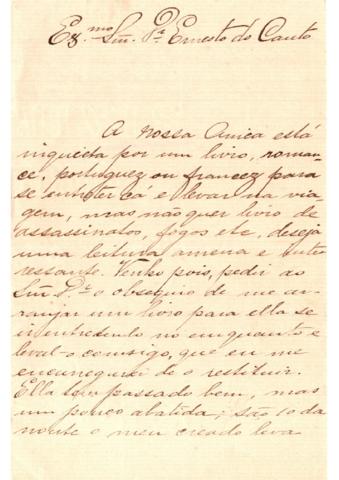 Ex.mo Snr. Dr. Ernesto do Canto
A nossa Anica está
inquieta por um livro, roman-
ce, portuguez ou francez para
se entreter cá e levar na via
gem, mas não quer livro de
assassinatos, fogos etc, deseja
uma leitura amena e inte
ressante. Venho pois, pedir ao
Snr. Dr. o obsequio de me ar-
ranjar um livro para ella se
ir entretendo no emquanto e
leval-o comsigo, que eu me
encarregarei de o restituir.
Ella tem passado bem, mas
um pouco abatida; são 10 da
noute o meu creado leva